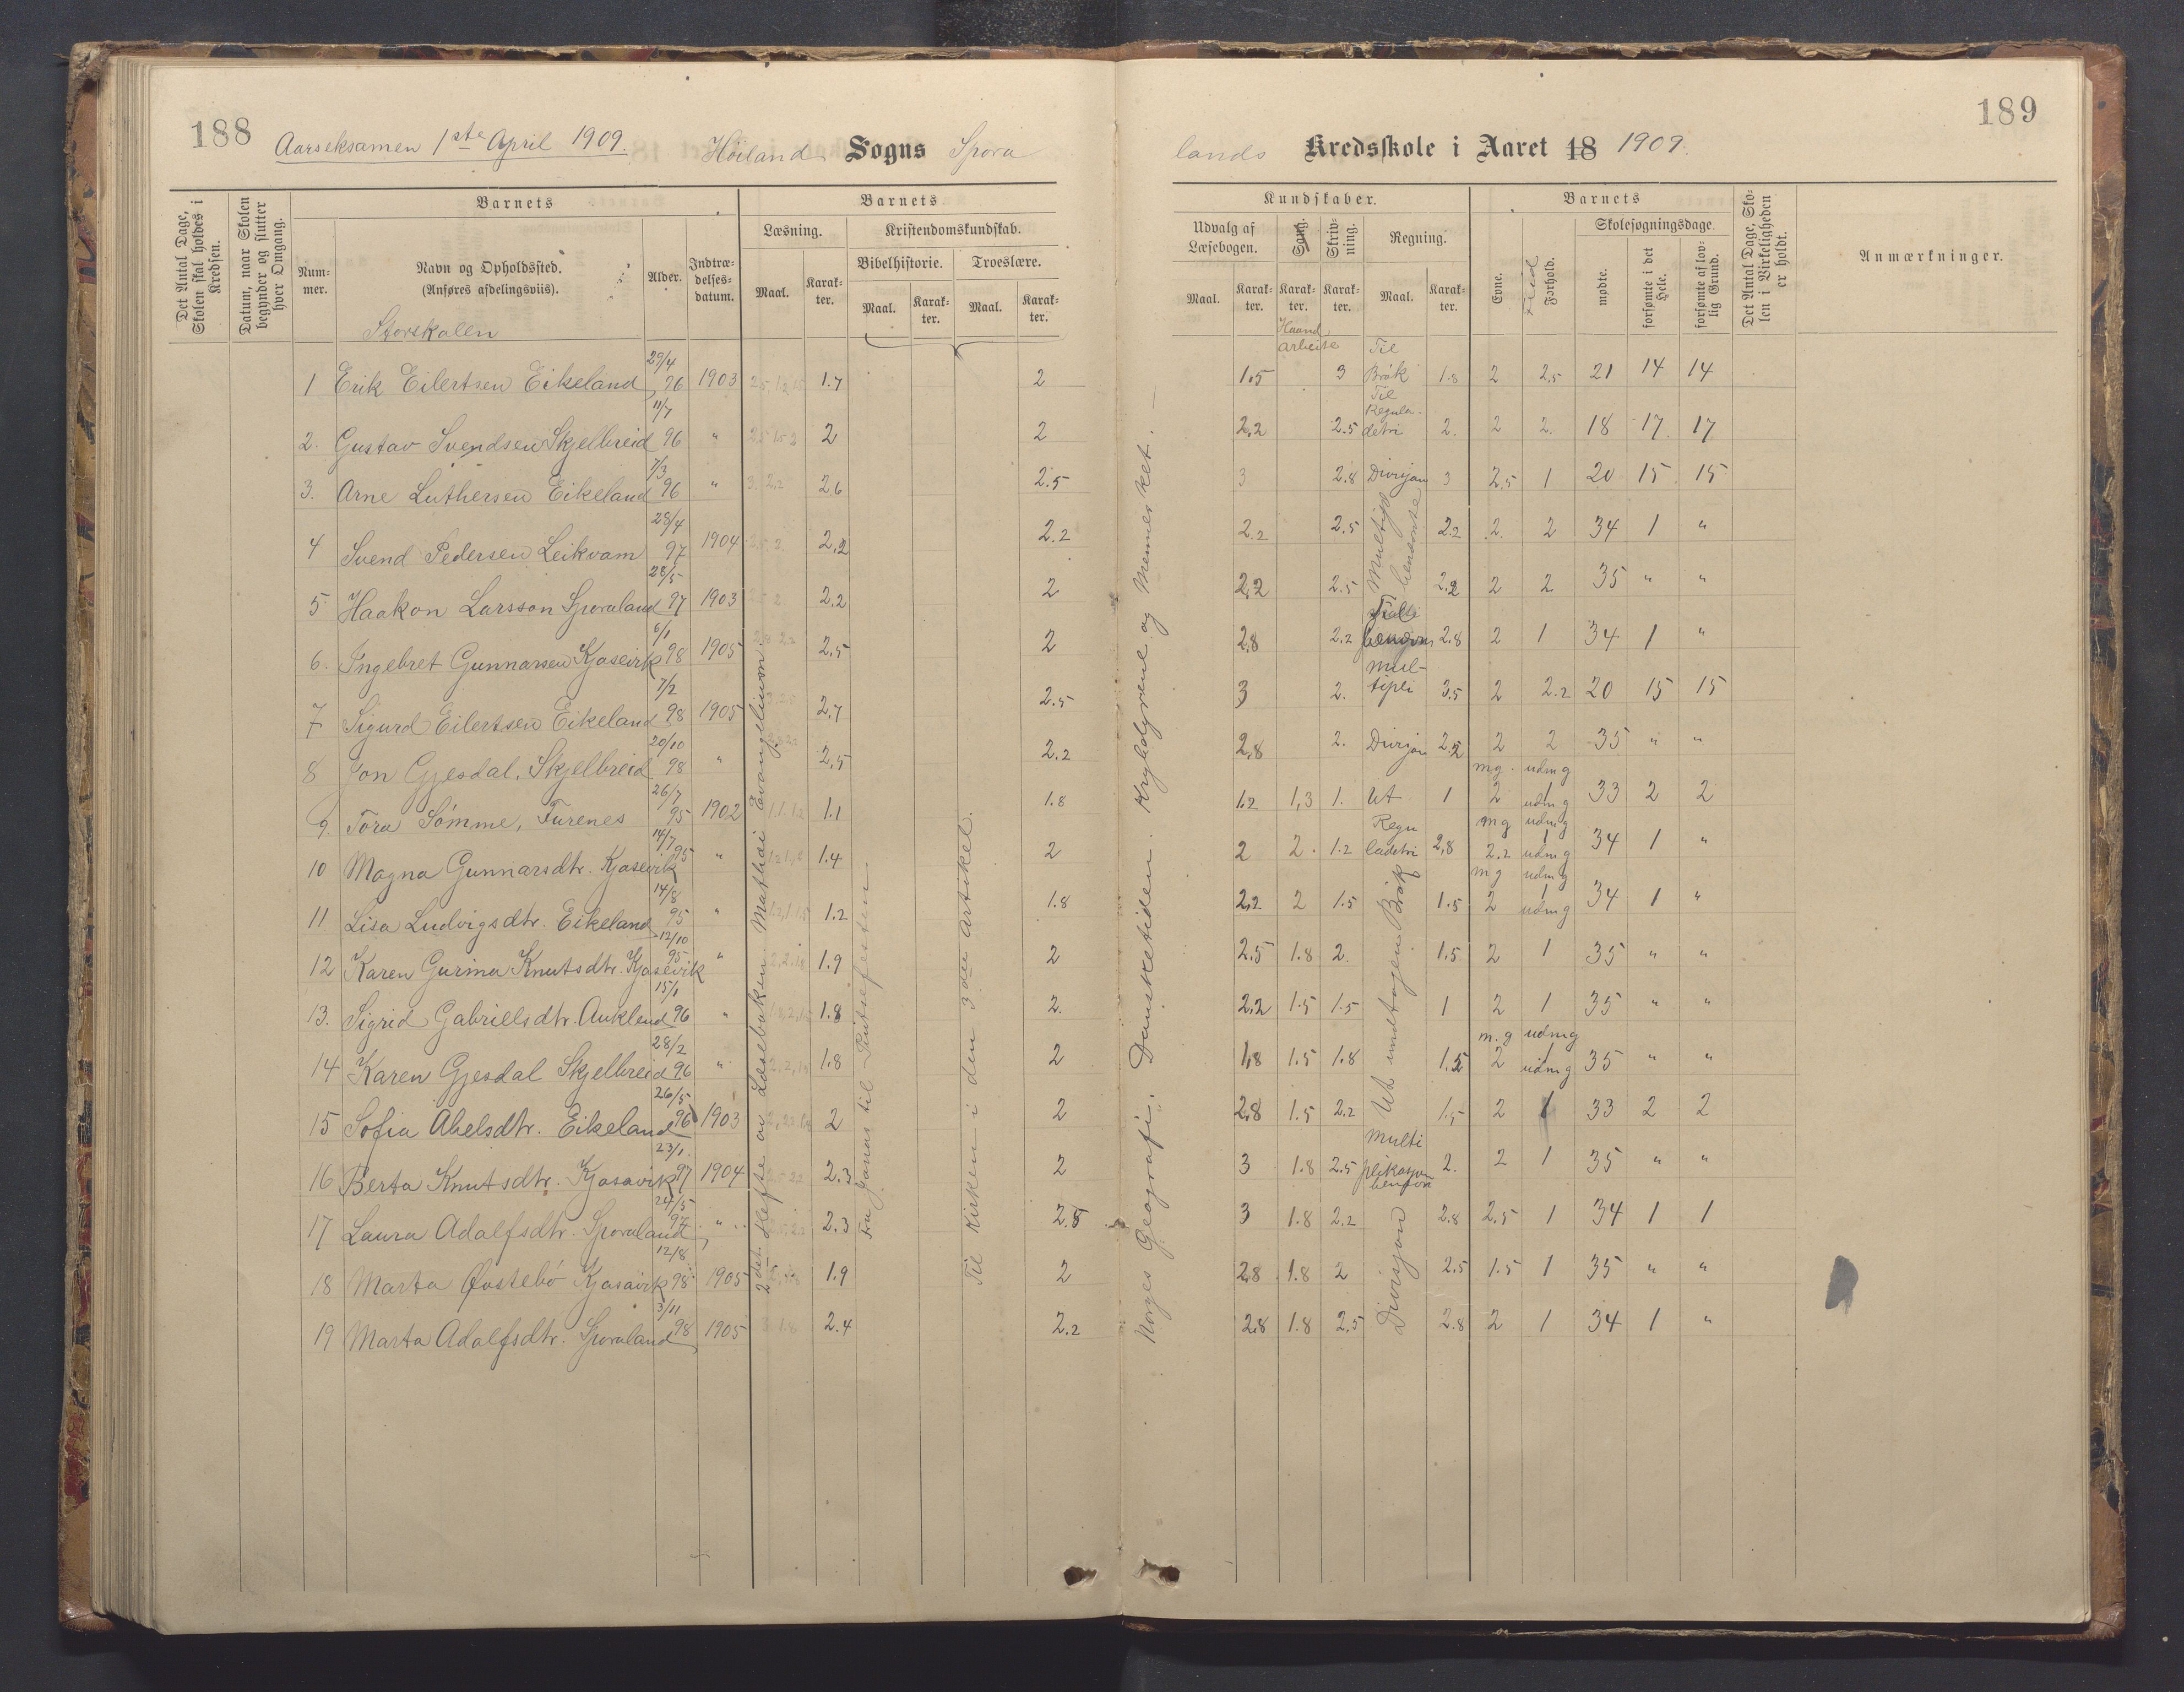 188
Aarseksamen 1ste April 1909.
Höiland Sogns Spora
Det Antal Dage, Skolen skal holdes i Kredsen.
Datum, naar Skolen begynder og slutter hver Omgang.
Barnets
Nummer.
Navn og Opholdssted.
(Anføres afdelingsviis).
Alder.
Indtrædelsesdatum.
Barnets
Læsning.
Kristendomskundskab.
Bibelhistorie.
Troeslære.
Maal.
Karakter.
Maal.
Karakter.
Maal.
Karakter.
Storskolen
1 Erik Eilertsen Eikeland 29/4 96 1903 1.7 2
2. Gustav Svendsen Skjelbreid 11/7 96 " 2 2
3. Arne Luthersen Eikeland 7/3 96 " 2.6 2.5
4 Svend Pedersen Leikvam 28/4 97 1904 2.2 2.2
5 Haakon Larsson Sporaland 28/5 97 1903 2.2 2
6. Ingebret Gunnarsen Kjosevik 6/1 98 1905 2.5 2
7 Sigurd Eilertsen Eikeland 7/2 98 1905 2.7 2.5
8 Jon Gjesdal, Skjelbreid 20/10 98 " 2.5 2.2
9. Tora Sömme, Furenes 26/7 95 1902 1.1 1.8
10 Magna Gunnarsdtr. Kjosevik 14/7 95 " 1.4 2
11 Lisa Ludvigsdtr. Eikeland 14/8 95 " 1.2 1.8
12 Karen Gurina Knutsdtr. Kjosevik 12/10 95 " 1.9 2
13. Sigrid Gabrielsdtr. Auklend 15/1 96 " 1.8 2.
14 Karen Gjesdal Skjelbreid 28/2 96 " 1.8 2
15 Sofia Abelsdtr. Eikeland 26/5 96 1903 2 2
16 Berta Knutsdtr. Kjosavik 23/1 97 1904 2.3 2
17 Laura Adolfsdtr. Sporaland 24/5 97 " 2.3 2.5
18 Marta Øvstebö Kjosavik 12/8 98 1905 1.9 2
19 Marta Adolfsdtr. Sporaland 3/11 98 1905 2.4 2.2
2det Hefte av Læseboken Mathæi Evangelium
Fra Jonas til Pintsefesten
Til Kirken i den 3die Artikel.
189
lands Kredsskole i Aaret 18 1909.
Kundskaber.
Udvalg af Læsebogen.
Sang.
Skrivning.
Regning.
Maal.
Karakter.
Karakter.
Karakter.
Maal.
Karakter.
Haandarbeite
Barnets
Evne.
Flid
Forhold.
Skolesøgningsdage.
mødte.
forsømte i det Hele.
forsømte af lovlig Grund.
Det Antal Dage, Skolen i Virkeligheden er holdt.
Anmærkninger.
Norges Geografi. Dansketiden. Krybdyrene og Mennesket.
1.5 3 Til Bråk 1.8 2 2.5 21 14 14
2.2 2.5 Til Reguladetri 2. 2 2. 18 17 17
3 2.8 Divisjon 3 2.5 1 20 15 15
2.2 2.5 2.2 2. 2 34 1 "
2.2 2.5 2.2 2 2 35 " "
2.8 2.2 2.8 2 1 34 1 "
3 2. Multipli 3.5 2 2.2 20 15 15
2.8 2. Divisjon 2.2 2 2 35 " "
1.2 1,3 1. Ut 1 mg 2 udmg 1 33 2 2
2 2. 1.2 Reguladetri 2,8 mg 2.2 udmg 1 34 1 "
2,2 2 1.5 1.5 mg 2 udmg 1 34 1 "
2.5 1.8 2. 1.5 2 1 35 " "
2.2 1.5 1.5 1 2 1 35 " "
1,8 1.5 1.8 1.2 m.g 2 udmg 1 35 " "
2,8 1.5 2.2 1.5 2 1 33 2 2
3 1.8 2.5 Multiplikasjon 2. 2 1 35 " "
3 1.8 2.2 2.8 2.5 1 34 1 1
2.8 1.8 2 2.5 1.5 1 35 " "
2.8 1.8 2,5 2.8 2 1 34 1 "
Ut undtagen Bråk
Divisjon